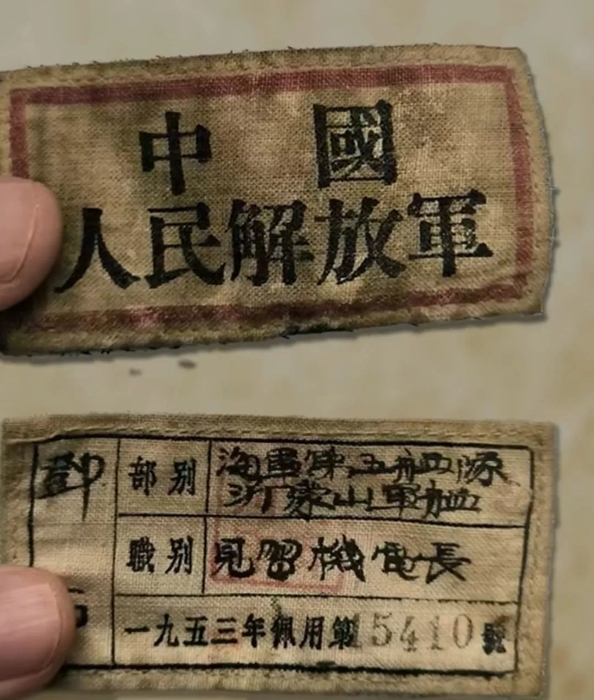 中國
人民解放軍
鄧
部別
海軍第五舰隊
沂蒙山軍舰
職別
見習機電長
一九五三年佩用第15410號